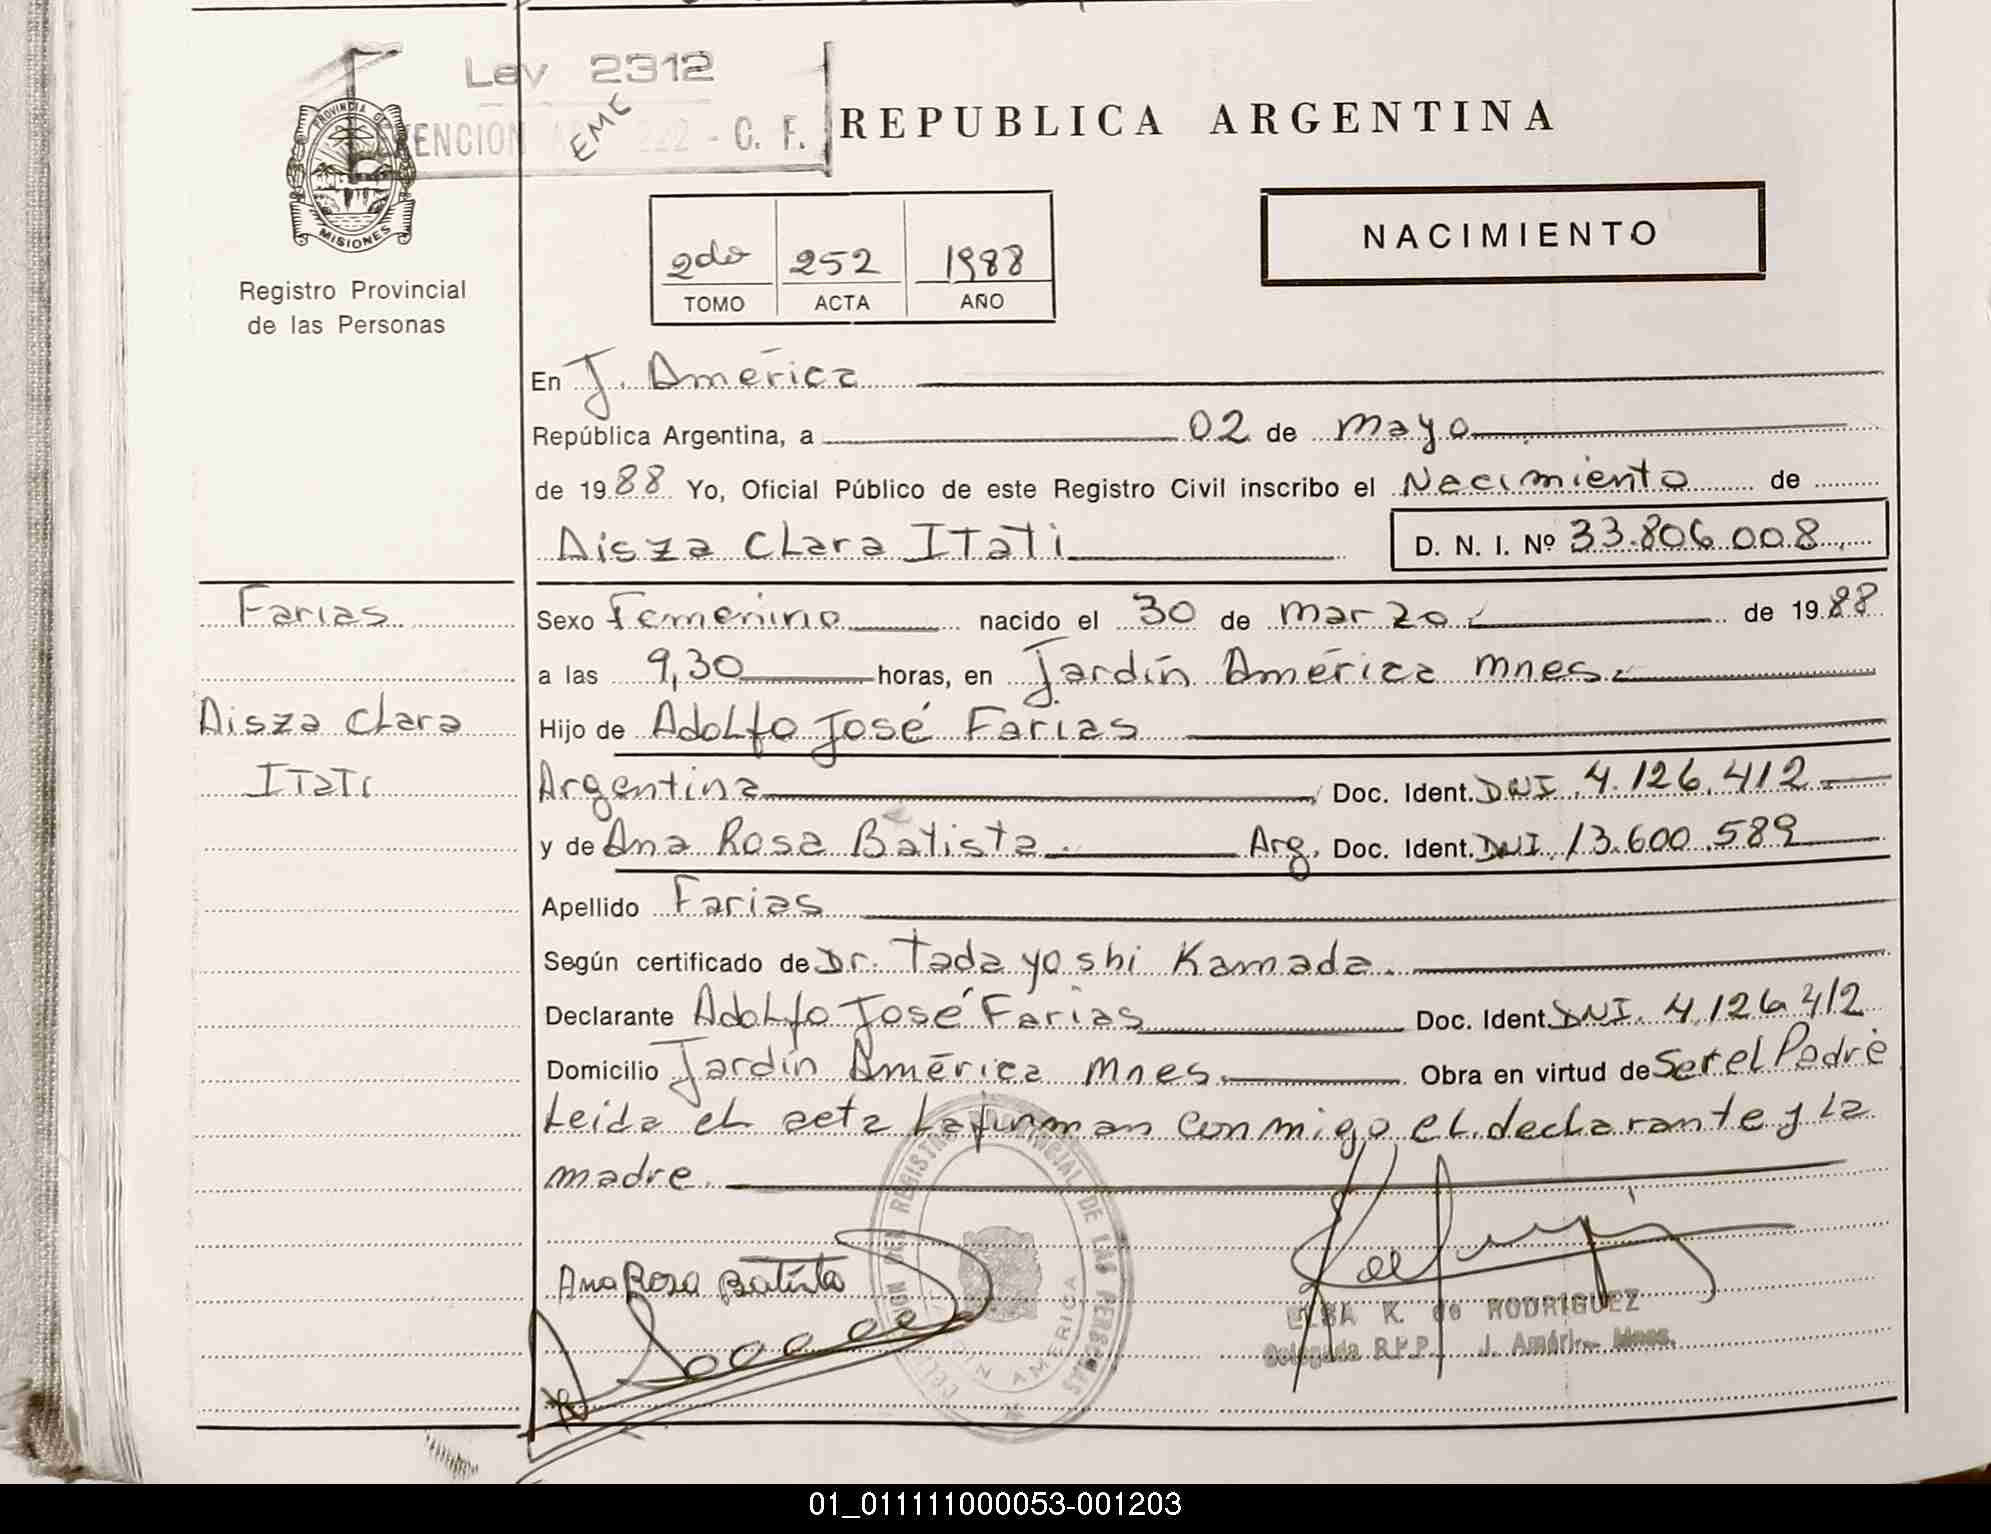 Ley 2312
EXENCION ART. 222 - C. F.
EMC
PROVINCIA DE
MISIONES
Registro Provincial
de las Personas
REPUBLICA ARGENTINA
NACIMIENTO
2do 252 1988
TOMO ACTA AÑO
En J. América
República Argentina, a 02 de mayo
de 1988 Yo, Oficial Público de este Registro Civil inscribo el Nacimiento de
Aisza Clara Itati D. N. I. Nº 33.806.008
Farias
Aisza Clara
Itati
Sexo Femenino nacido el 30 de marzo de 1988
a las 9,30 horas, en Jardín América mnes.
Hijo de Adolfo José Farias
Argentina Doc. Ident. DNI. 4.126.412
y de Ana Rosa Batista Arg. Doc. Ident. DNI. 13.600.589
Apellido Farias
Según certificado de Dr. Tadayoshi Kamada.
Declarante Adolfo José Farias Doc. Ident. DNI. 4.126.412
Domicilio Jardín América mnes. Obra en virtud de Ser el Padre
Leida el acta la firman conmigo el declarante y la
madre.
Ana Rosa Batista
REGISTRO PROVINCIAL DE LAS PERSONAS
AMERICA
ELSA K. de RODRIGUEZ
Delegada R.P.P. J. América - Mnes.
01_011111000053-001203